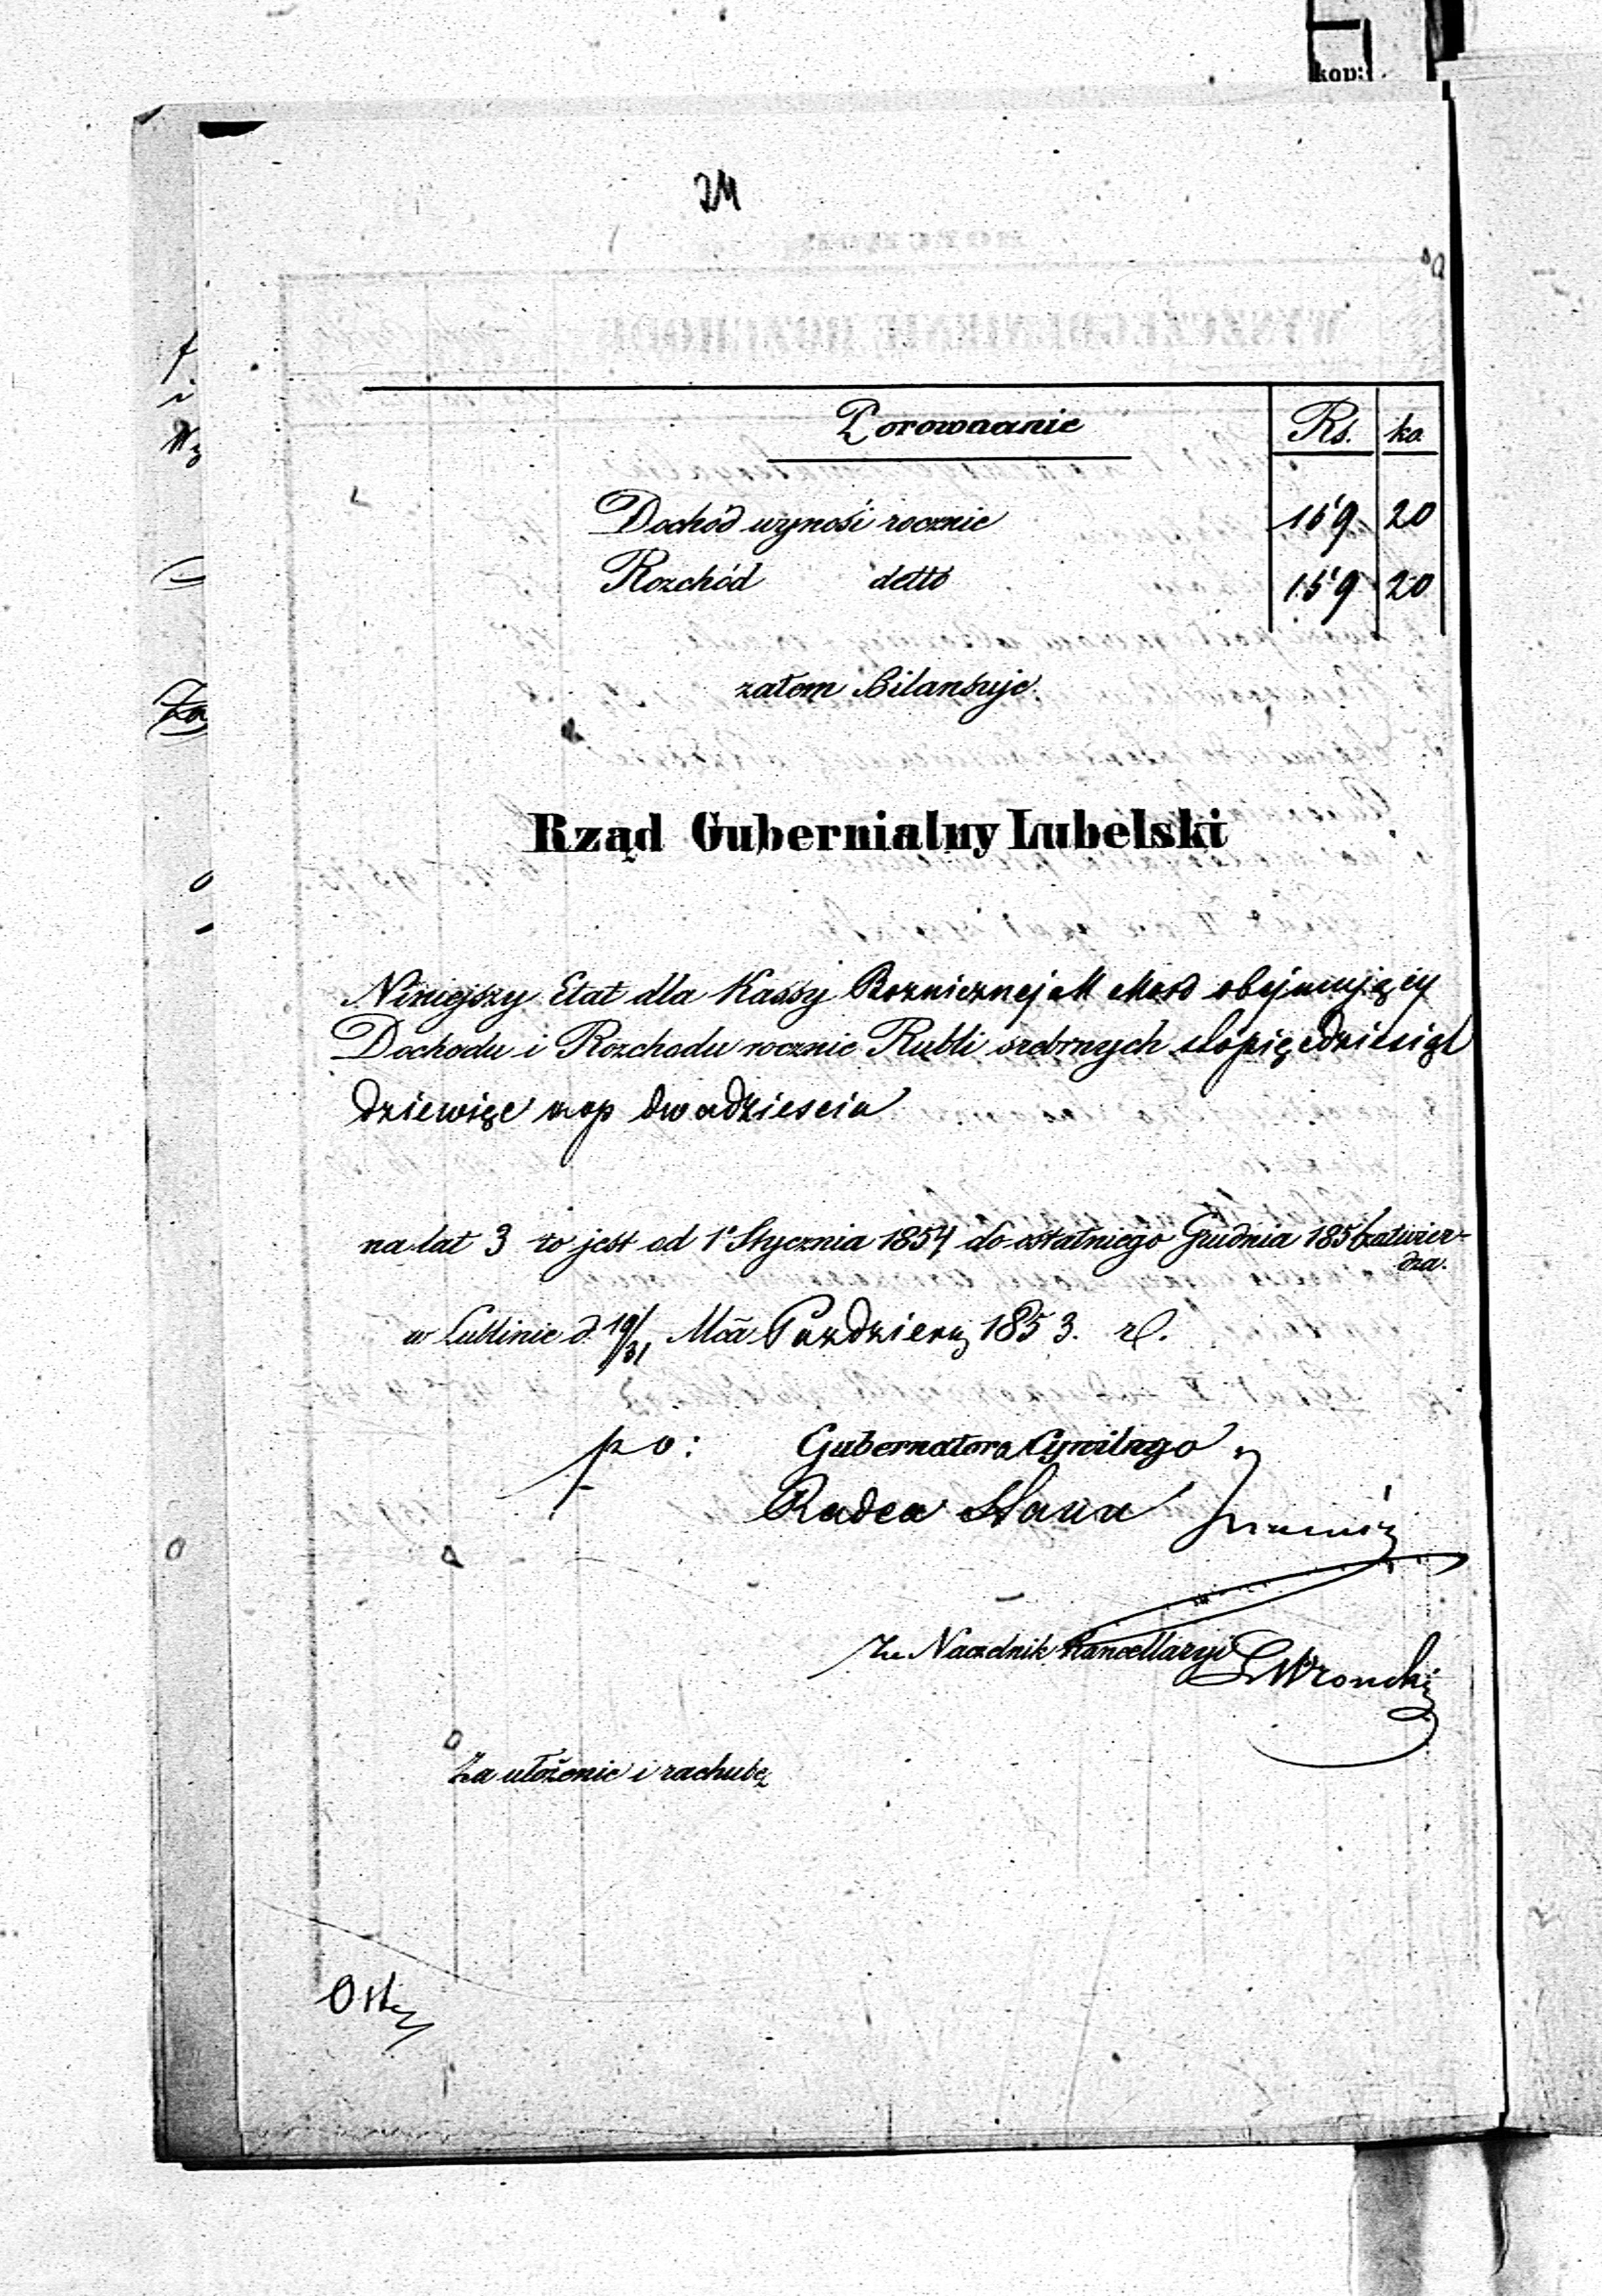 24
kop:
Porownanie Rs. ko.
Dochód wynosi rocznie 159 20
Rozchód detto 159 20
zatem Bilansuje.
Rząd Gubernialny Lubelski
Niniejszy Etat dla Kassy Boznicznej M Mord obejmujący
Dochodu i Rozchodu rocznie Rubli srebrnych stopięćdziesiąt
dziewięc kop dwadziescia
na lat 3 to jest od 1º Stycznia 1854 do ostatniego Grudnia 1856 zatwier-
dza.
w Lublinie d. 19/31 Mca Pazdziern 1853. r.
po: Gubernatora Cywilnego
Radca Stanu
Za Naczelnik Kancellaryi Wronski
Za ułożenie i rachubę